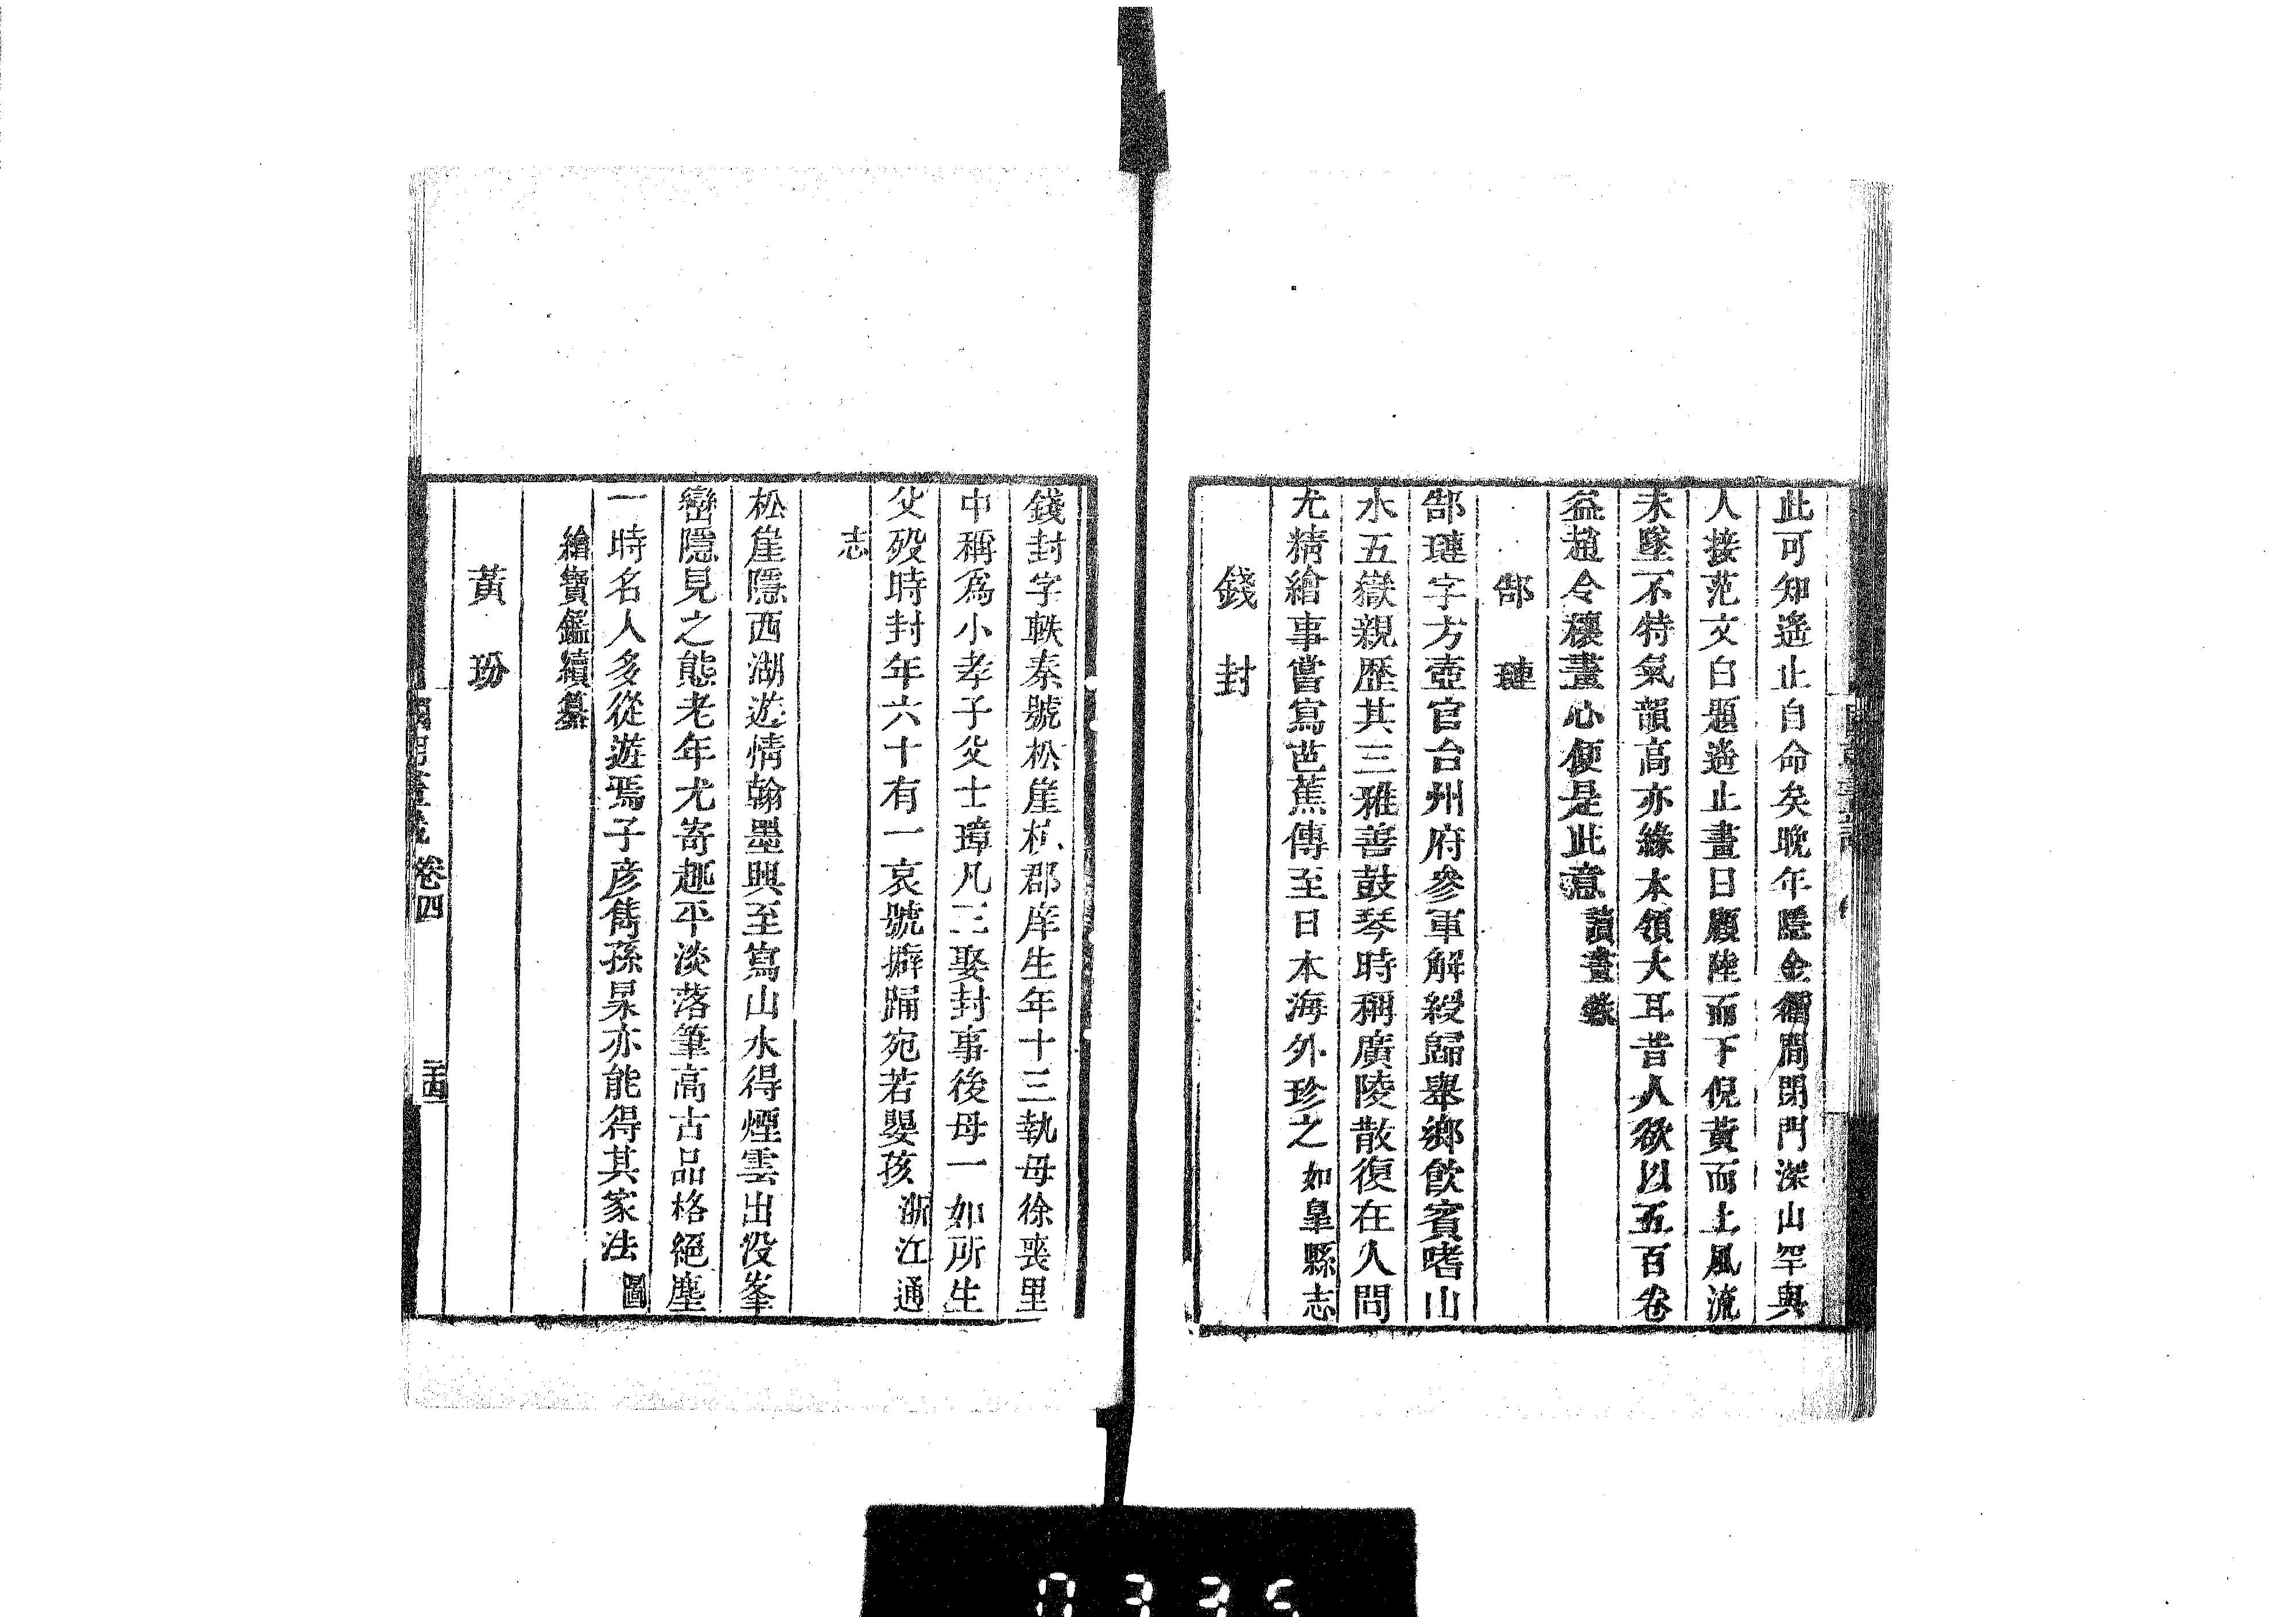 此可知遙止自命矣晚年隱金㵎間閉門深山罕與
人接范文白題遙止畫曰顧陸而下倪黃而上風流
未墜不特氣韻高亦緣本領大耳昔人欲以五百卷
益趙令穰畫心便是此意讀畫錄
郜璉
郜璉字方壺官台州府參軍解綬歸舉鄉飲賓嗜山
水五嶽親歷其三雅善鼓琴時稱廣陵散復在人間
尤精繪事嘗寫芭蕉傳至日本海外珍之如皐縣志
錢封
錢封字軼秦號松崖杭郡庠生年十三執母徐喪里
中稱爲小孝子父士璋凡三娶封事後母一如所生
父歿時封年六十有一哀號擗踊宛若嬰孩浙江通
志
松崖隱西湖遊情翰墨興至寫山水得煙雲出没峯
巒隱見之態老年尤寄趣平淡落筆高古品格絕塵
一時名人多從遊焉子彦雋孫杲亦能得其家法圖
繪寶鑑續纂
黃玢
卷四